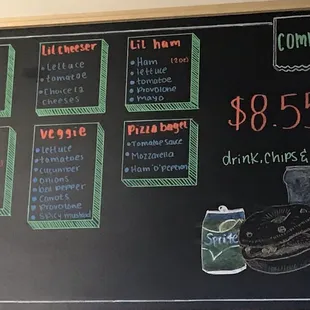 Lil cheeser
Lettace
tomatoe
Choice La
cheeses
Lil ham
Ham (2oz)
lettuce
tomatoe
provolone
mayo
veggie
lettuce
tomatoes
cucumber
onions
bell pepper
Carrots
Provolone
Spicy mustard
Pizza bagel
Tomatoe sauce
Mozzarella
Ham O'Pepperoni
COMB
$8.55
drink, chips &
Sprite